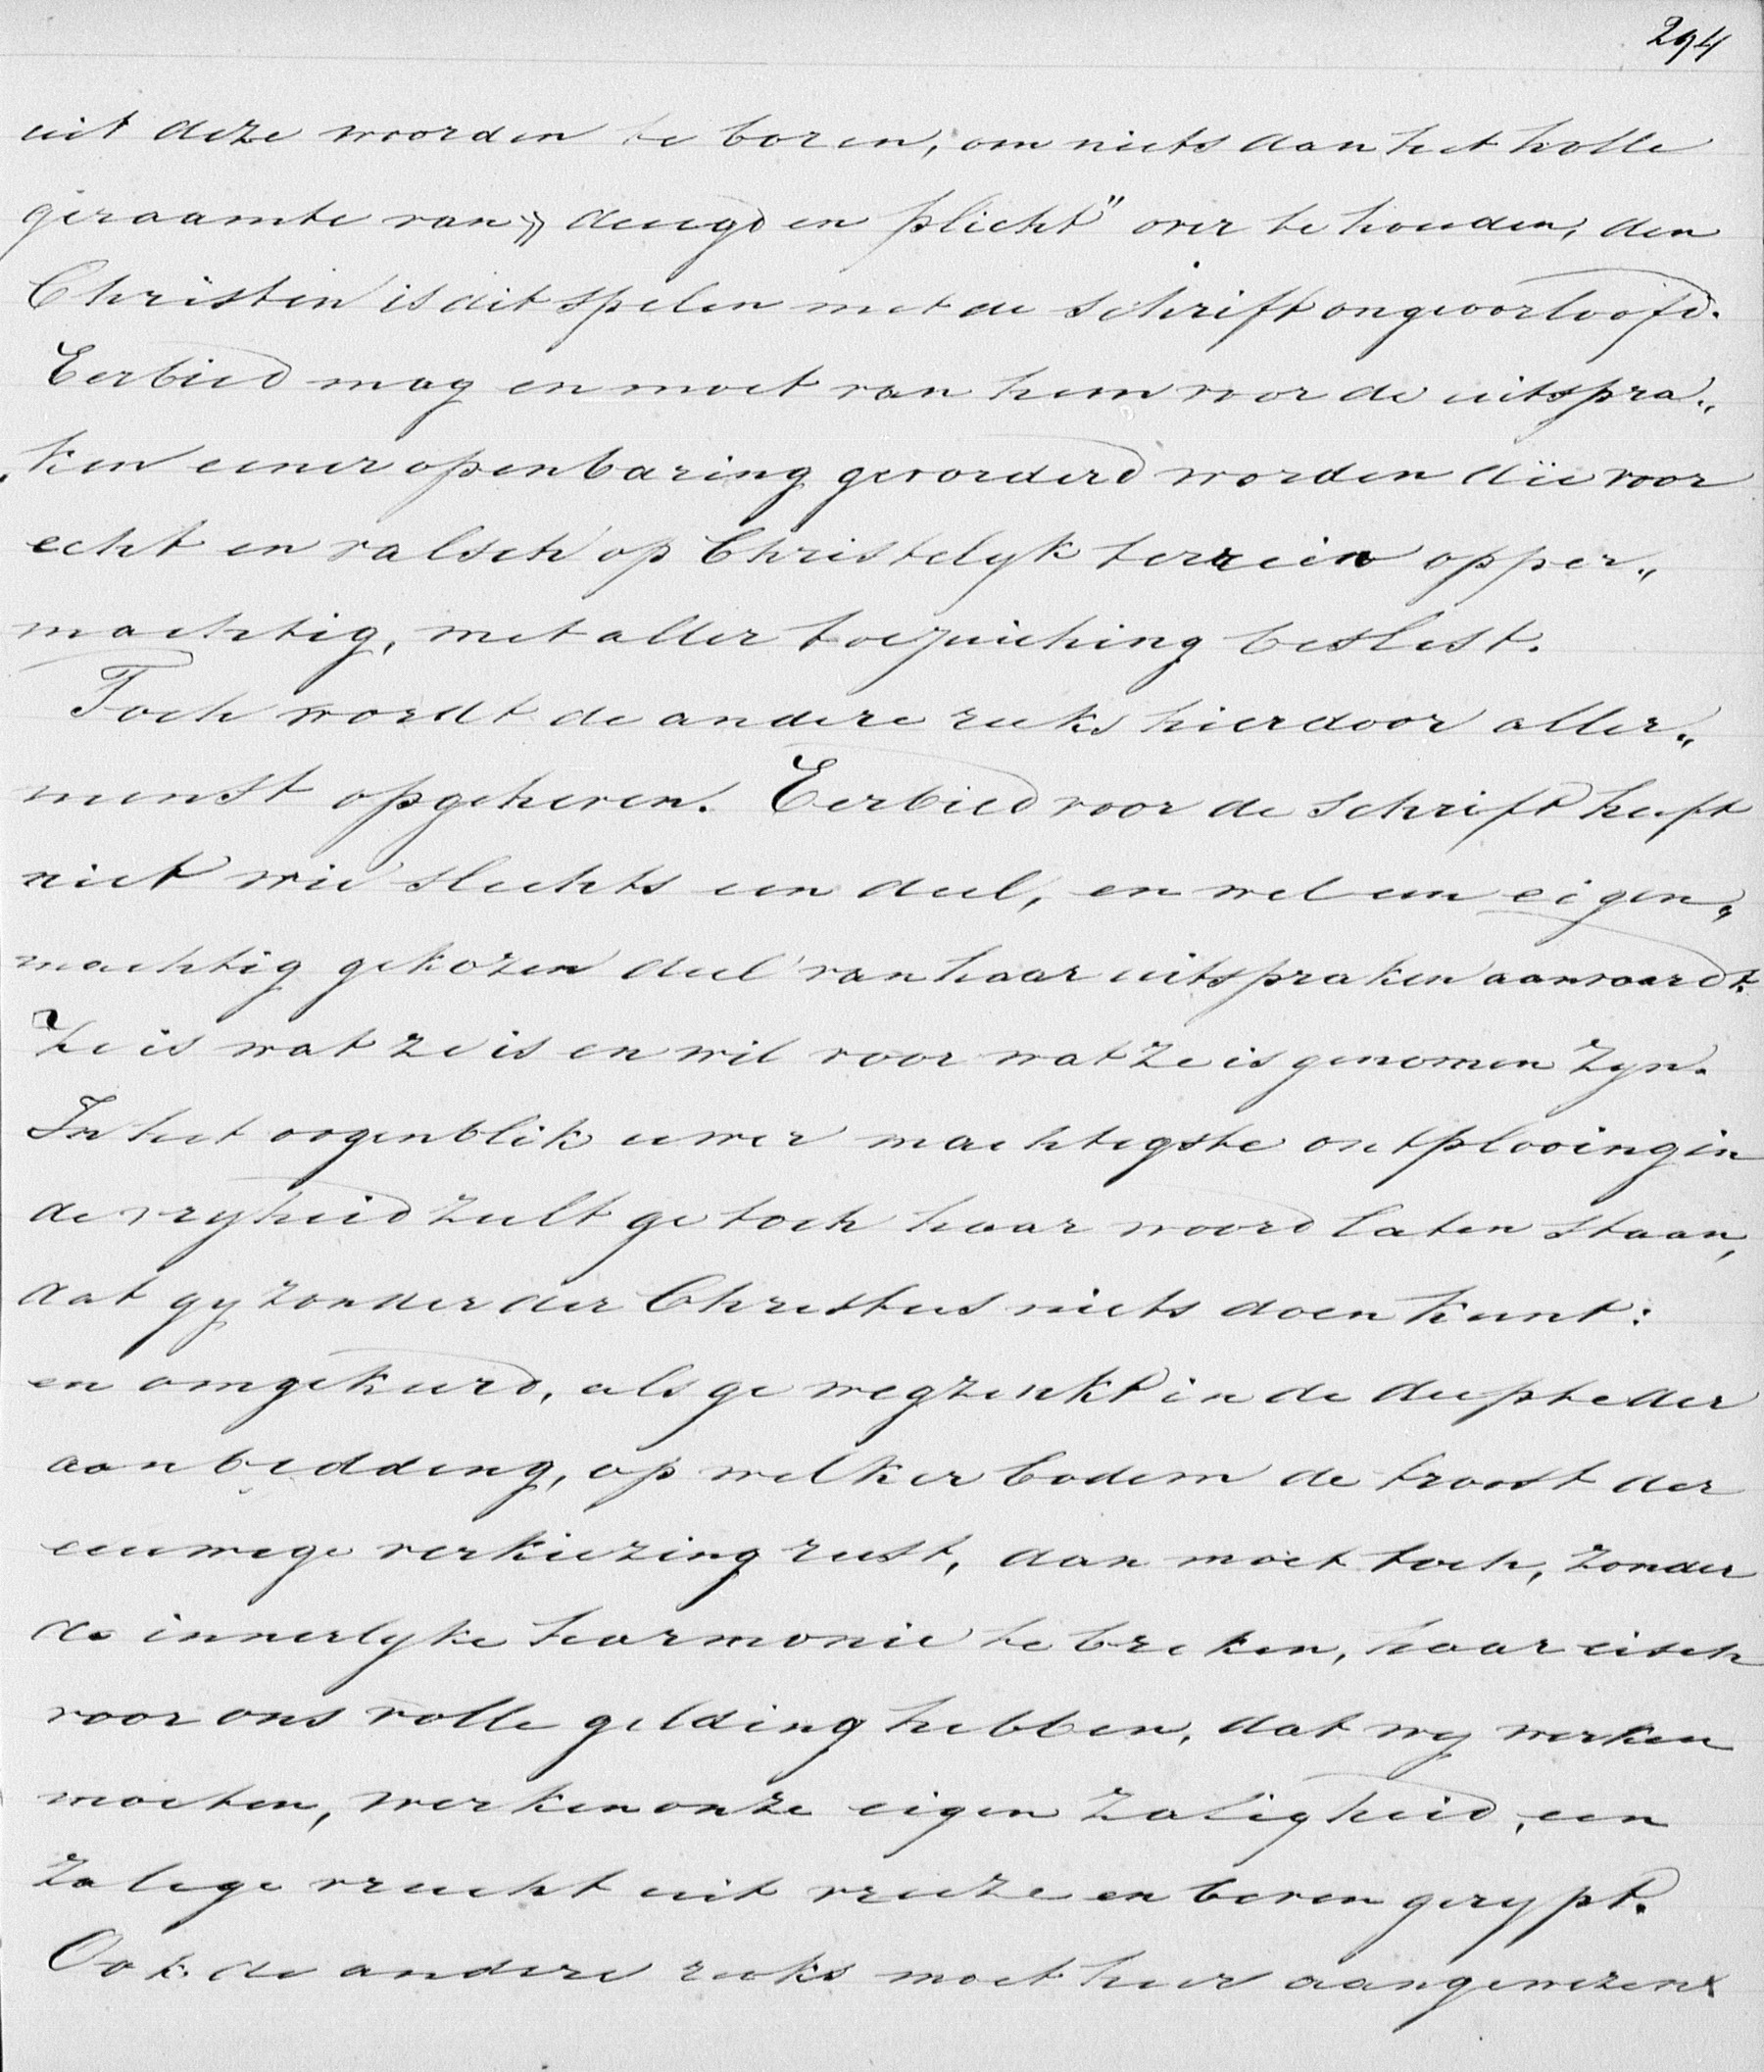 294
uit deze woorden te boren, om niets dan het holle
geraamte van „deugd en plicht” over te houden, den
Christen is dit spelen met de schrift ongeoorloofd.
Eerbied mag en moet van hem voor de uitspra„
„ken eener openbaring gevorderd worden die voor
echt en valsch op Christelyk terrein opper„
machtig, met aller toejuiching beslist.
Toch wordt de andere reeks hierdoor aller„
minst opgeheven. Eerbied voor de schrift heeft
niet wie slechts een deel, en wel een eigen„
machtig gekozen deel van haar uitspraken aanvaardt.
Ze is wat ze is en wil voor wat ze is genomen zyn.
In het oogenblik uwer machtigste ontplooiing in
de vryheid zult ge toch haar woord laten staan,
dat gy zonder der Christus niets doen kunt:
en omgekeerd, als ge wegzinkt in de diepte der
aanbidding, op welker bodem de troost der
eeuwige verkiezing rust, dan moet toch, zonder
de innerlyke harmonie te breken, haar eisch
voor ons volle gelding hebben, dat wy werken
moeten, werken onze eigen zaligheid, een
zalige vrucht uit vreeze en beven gerypt.
Ook de andere reeks moet hier aangewezen